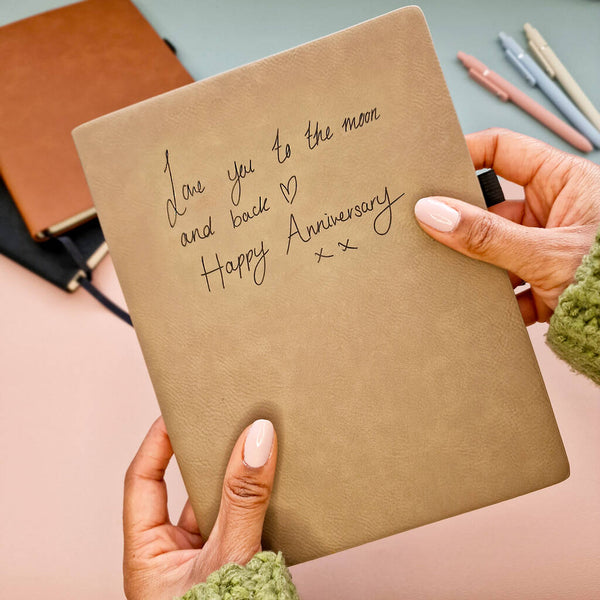 Love you to the moon
and back ♡
Happy Anniversary
x x